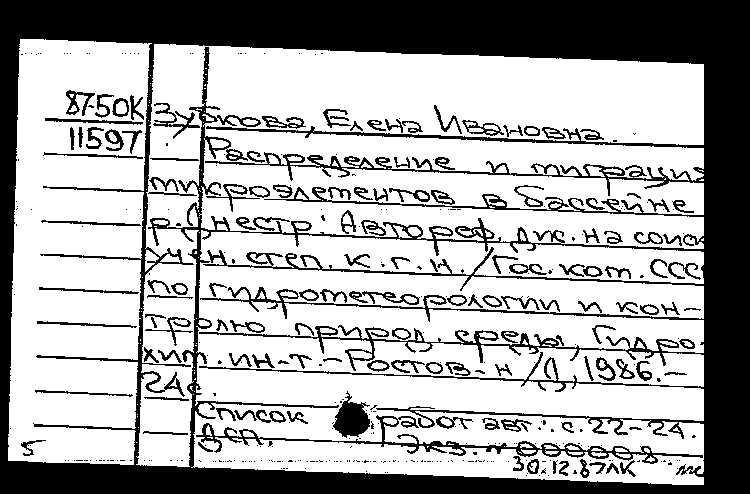 87-50К Зубкова, Елена Ивановна.
11597 Распределение и миграция
микроэлементов в бассейне
р. Днестр: Автореф. дис. на соиск
учен. степ. к.г.н. / Гос. ком. СССР
по гидрометеорологии и кон-
тролю природ. среды, Гидро-
хим. ин-т. - Ростов-н/Д, 1986. -
24с.
Список работ авт.: с. 22-24.
Деп. Экз. н 000008
5 30.12.87ЛК